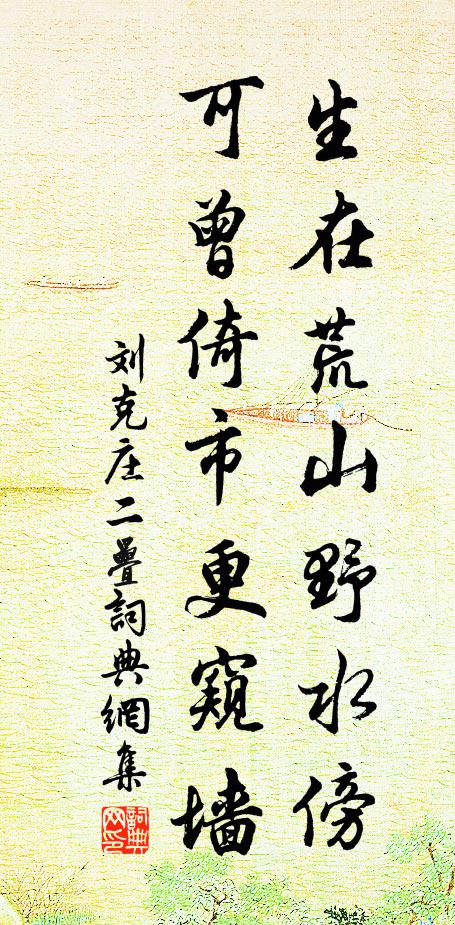 生在荒山野水傍
可曾倚市更窺墙
刘克庄二疊詞典網集
詞典
网印